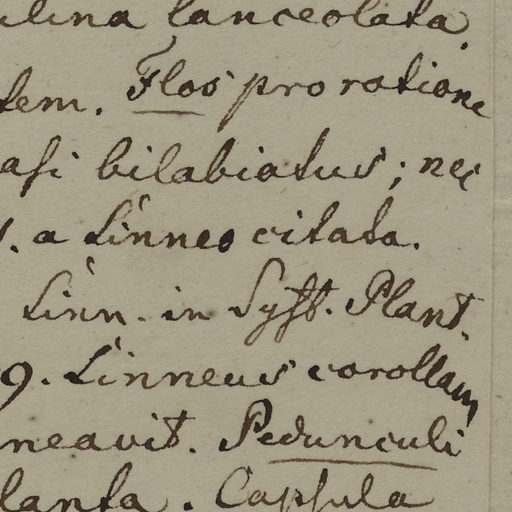 lina lanceolata.
tem. Flos pro ratione
asi bilabiatus; nec
s. a Linneo citata.
Linn. in Syst. Plant.
9. Linneus corollam
neavit. Pedunculi
lanta. Capsula